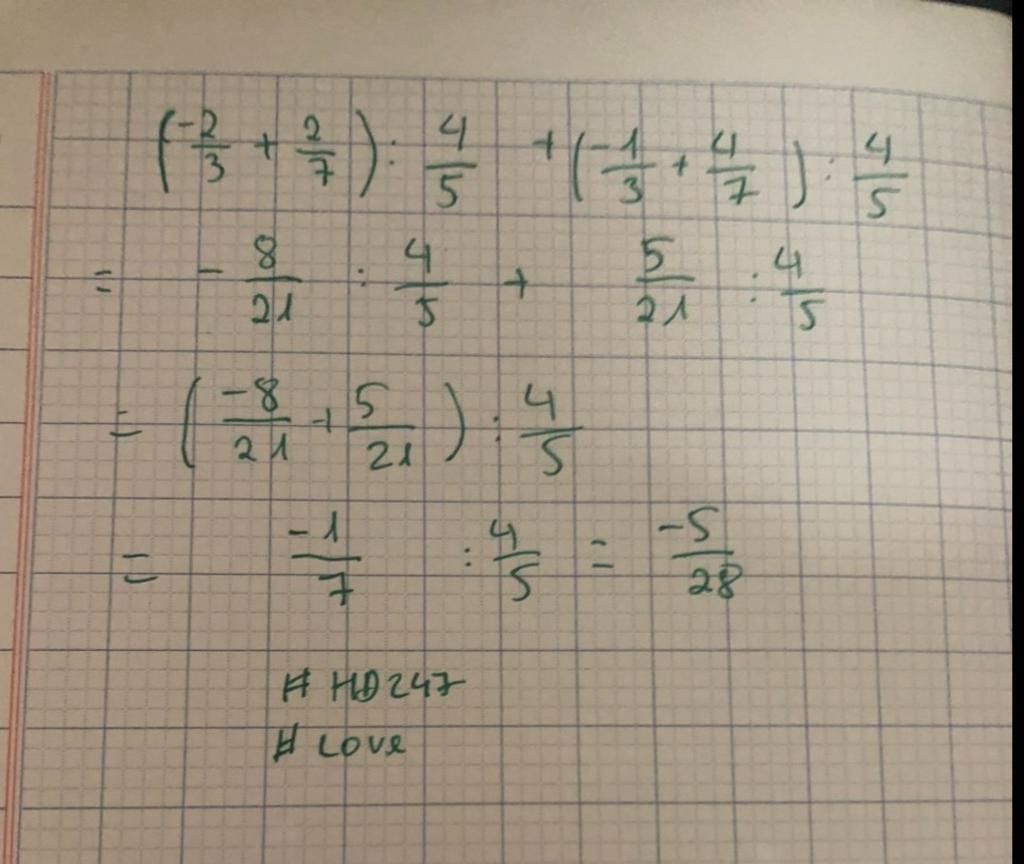 (-2/3 + 2/7) : 4/5 + (-1/3 + 4/7) : 4/5
= - 8/21 : 4/5 + 5/21 : 4/5
= (-8/21 + 5/21) : 4/5
= -1/7 : 4/5 = -5/28
# HD247
# Love